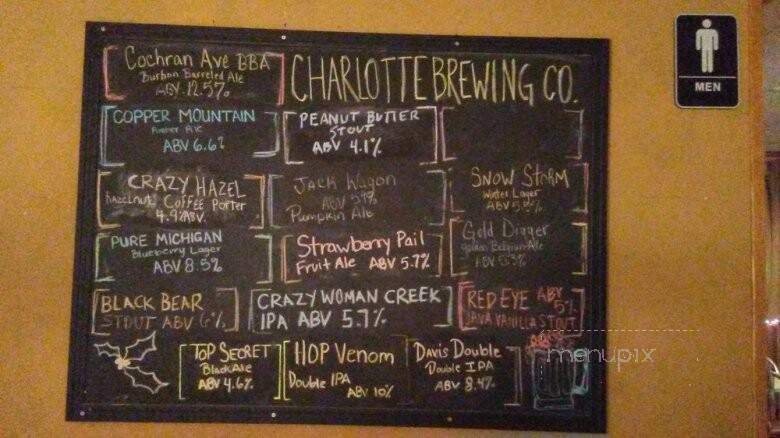 COCHRAN AVE BBA
Burbon Barreled Ale
ABV 12.5%
CHARLOTTE BREWING CO.
MEN
COPPER MOUNTAIN
Amber Ale
ABV 6.6%
PEANUT BUTTER
STOUT
ABV 4.1%
CRAZY HAZEL
Hazelnut Coffee Porter
4.9% ABV.
Jack Wagon
Pumpkin Ale
SNOW STORM
Winter Lager
PURE MICHIGAN
Blueberry Lager
ABV 8.5%
Strawberry Pail
Fruit Ale ABV 5.7%
Gold Digger
Golden Belgian Ale
BLACK BEAR
STOUT ABV 6%
CRAZY WOMAN CREEK
IPA ABV 5.7%
RED EYE ABV
5%
JAVA VANILLA STOUT
TOP SECRET
Black Ale
ABV 4.6%
HOP Venom
Double IPA
ABV 10%
Davis Double
Double IPA
ABV 8.4%
menupix